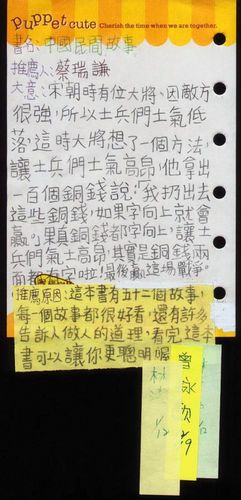 Puppet cute Cherish the time when we are together.
書名:中國民間故事
推薦人:蔡瑞謙
大意:宋朝時有位大將、因敵方
很強,所以士兵們士氣低
落,這時大將想了一個方法,
讓士兵們士氣高昂,他拿出
一百個銅錢說:「我扔出去
這些銅錢,如果字向上就會
贏。」果真銅錢都字向上,讓士
兵們士氣高昂,其實是銅錢兩
面都有字啦!最後贏這場戰爭。
推薦原因:這本書有五十二個故事,
每一個故事都很好看,還有許多
告訴人做人的道理,看完這本
書可以讓你更聰明喔
林
1/12
曾永
1/9